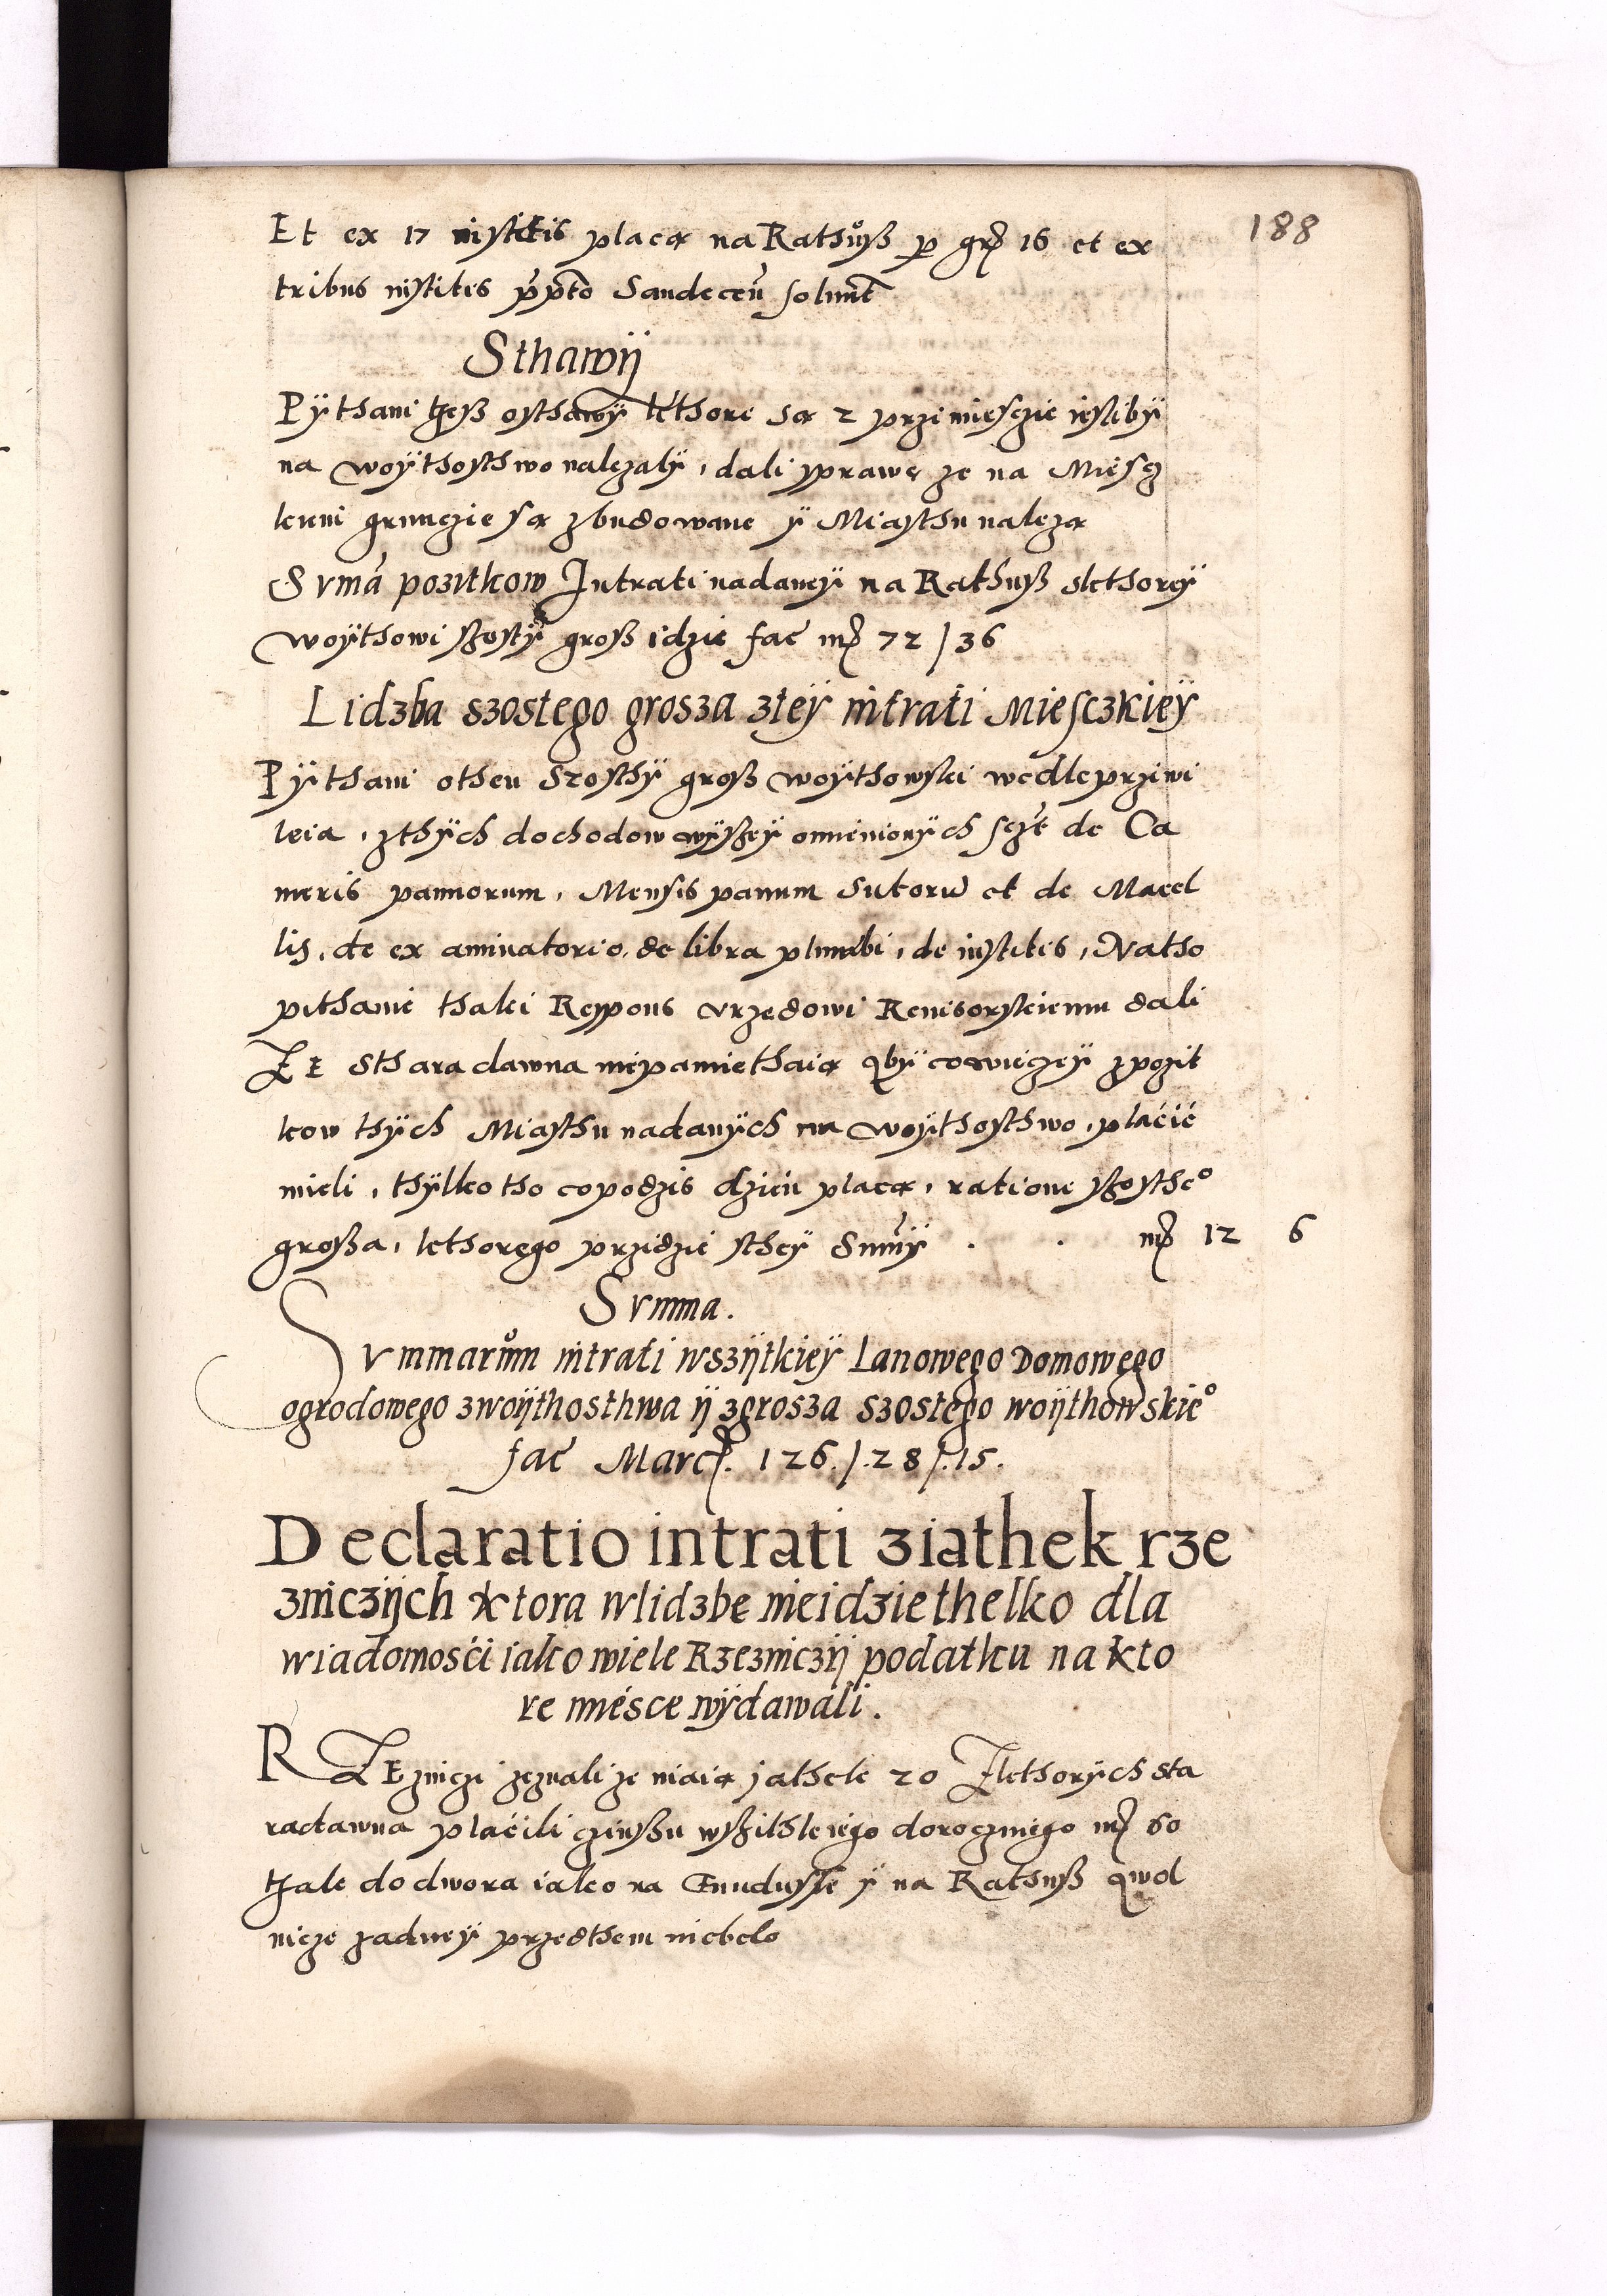 188
Et ex 17 institis placą na Rathuß p gr 16 et ex
tribus institis pprto Sandeceñ solunt
Sthawÿ
Pÿthani theß osthawÿ kthore są z przimiesczie iestlibÿ
na woÿthosthwo nalezalÿ, dali sprawę ze na Miescz
kim grunczie są zbudowane ÿ Miasthu nalezą
Svmã pozitkow Intrati nadaneÿ na Rathuß skthoreÿ
woÿthowi szostÿ groß idzie fac mr 72 / 36
Lidzba szostego grosza zteÿ intrati Miesczkieÿ
Pÿthani othen szosthÿ groß woÿthowski wedle prziwi
leia, zthÿch dochodow wÿszeÿ omienionÿch sczt de Ca
meris pannorum, Mensis panum sutorũ et de Macel
lis, de ex aminatorio, de libra plumbi, de institis, Natho
pithanie thaki Respons vrzedowi Revisorskiemu dali
ZE sthara dawna niepamiethaią abÿ co wieczeÿ zpozit
kow thÿch Miasthu nadanÿch na woÿthosthwo, płaćić
mieli, thÿlko tho co podzis dzień placą, ratione szosthe°
großa, kthorego przidzie stheÿ Sum̃ÿ . . mr 12 6
Svmma.
Svmmarům intrati wszÿtkieÿ Lanowego Domowego
ogrodowego zwoÿthosthwa ÿ zgrosza szostego woÿthowskie°
fac Marc. 126./.28/.15.
Declaratio intrati ziathek rze
zniczÿch ktora wlidzbe nieidzie thelko dla
wiadomośći iako wiele Rzezniczÿ podatku na kto
re miésce wÿdawáli.
RZEzniczi zeznali ze maią jathek 20 Zkthorÿch sta
radawna płaćili czinszu wszithkiego dorocznego mr 60
thak do dwora iako na ÿ na Rathuß
nicze zadneÿ przedthem niebelo